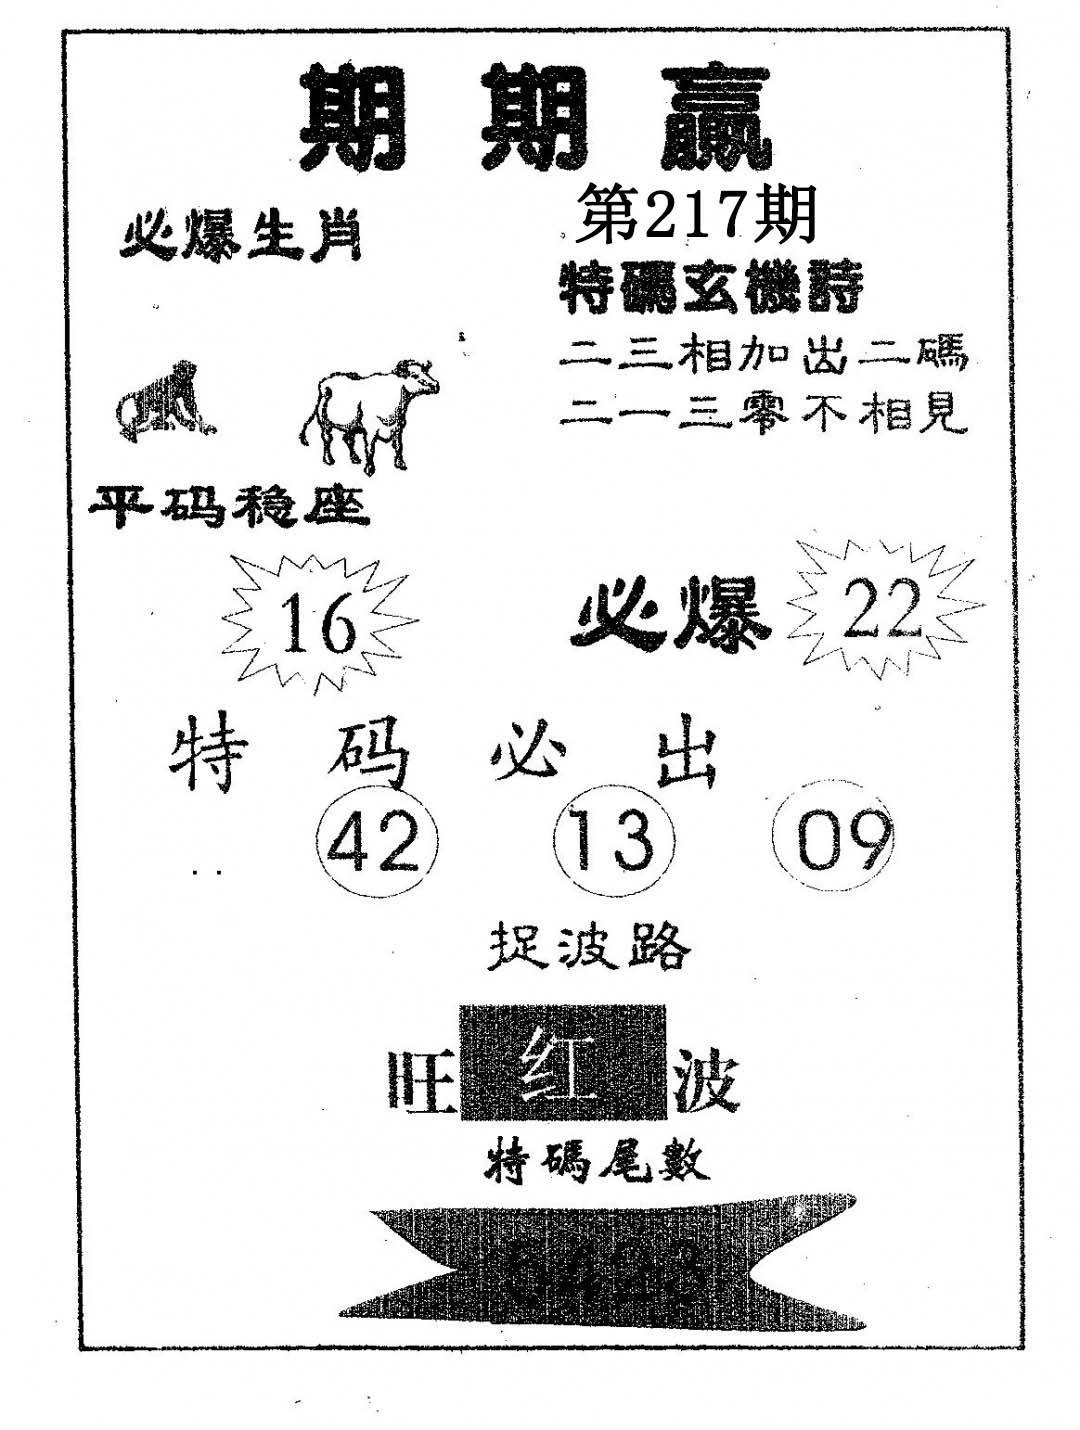 期期赢
第217期
必爆生肖
特碼玄機詩
二三相加出二碼
二一三零不相見
平码稳座
16
必爆 22
特码必出
42 13 09
捉波路
旺红波
特碼尾數